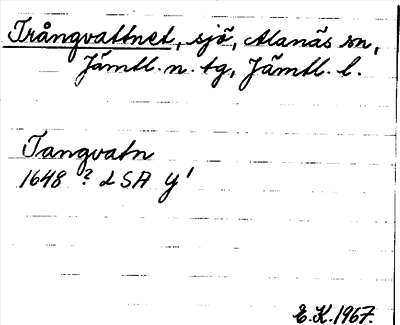 Trångvattnet, sjö, Alanäs sn,
Jämtl. n. tg, Jämtl. l.
Tangvatn
1648 ? d SA y'
E.K. 1967.